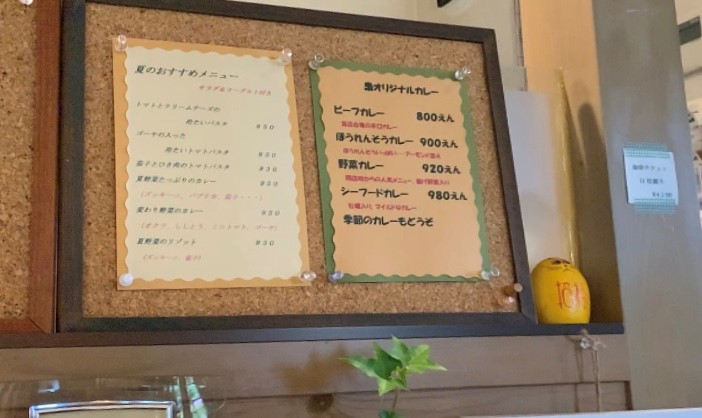 夏のおすすめメニュー
サラダ&ヨーグルト付き
トマトとクリームチーズの
冷たいパスタ 850
ゴーヤの入った
冷たいパスタ 850
茄子とひき肉のトマトパスタ
夏野菜たっぷりのカレー
(ズッキーニ、パプリカ、茄子・・・)
変わり野菜のカレー
(オクラ、ししとう、ミニトマト、ゴーヤ)
夏野菜のリゾット
(ズッキーニ、茄子)
オリジナルカレー
ビーフカレー 800えん
ほうれんそうカレー 900えん
野菜カレー 920えん
シーフードカレー 980えん
牡蠣入り、マイルドなカレー
季節のカレーもどうぞ
珈琲チケット
11枚綴り